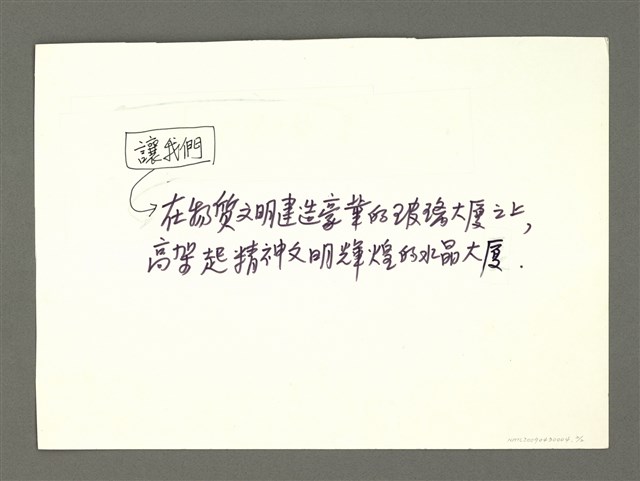 讓我們
在物質文明建造豪華的玻璃大厦之上，
高架起精神文明輝煌的水晶大厦.